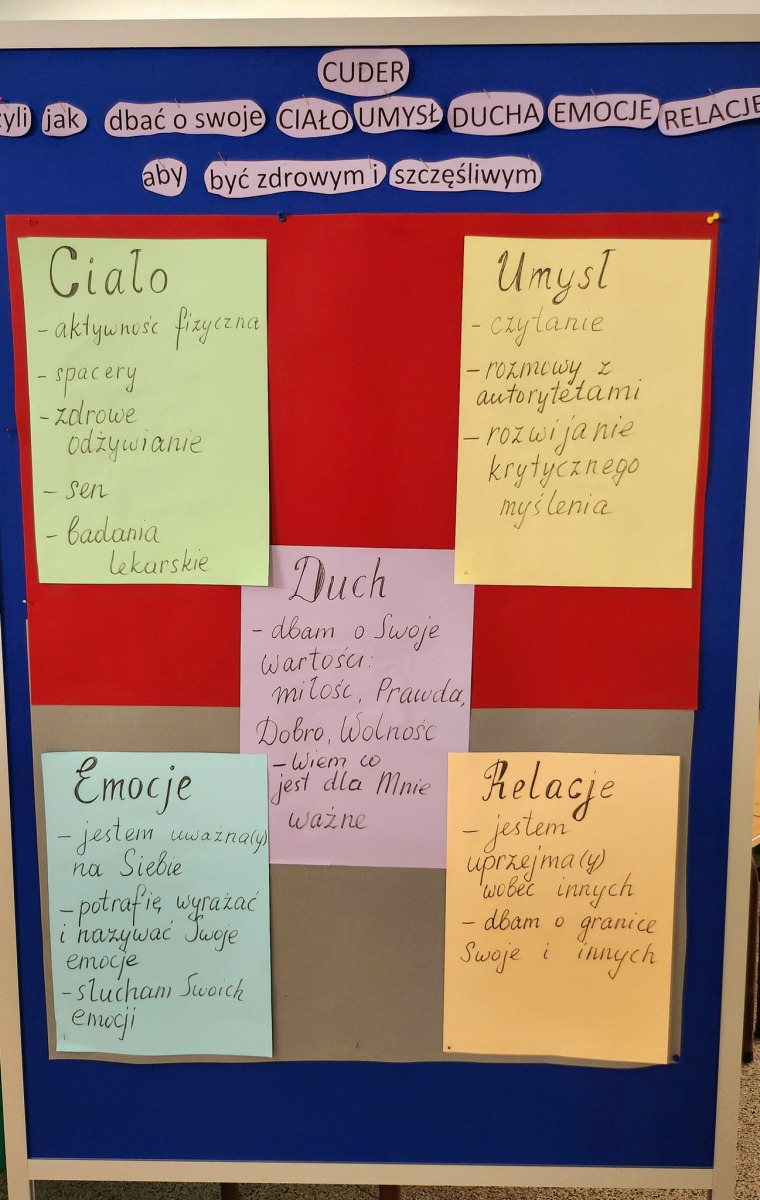 CUDER
czyli jak dbać o swoje CIAŁO UMYSŁ DUCHA EMOCJE RELACJE
aby być zdrowym i szczęśliwym
Ciało
- aktywność fizyczna
- spacery
- zdrowe
odżywianie
- sen
- badania
lekarskie
Umysł
- czytanie
- rozmowy z
autorytetami
- rozwijanie
krytycznego
myślenia
Duch
- dbam o Swoje
wartości:
miłość, Prawda,
Dobro, Wolność
- Wiem co
jest dla Mnie
ważne
Emocje
- jestem uważna(y)
na Siebie
- potrafię wyrażać
i nazywać Swoje
emocje
- słucham Swoich
emocji
Relacje
- jestem
uprzejma(y)
wobec innych
- dbam o granice
Swoje i innych